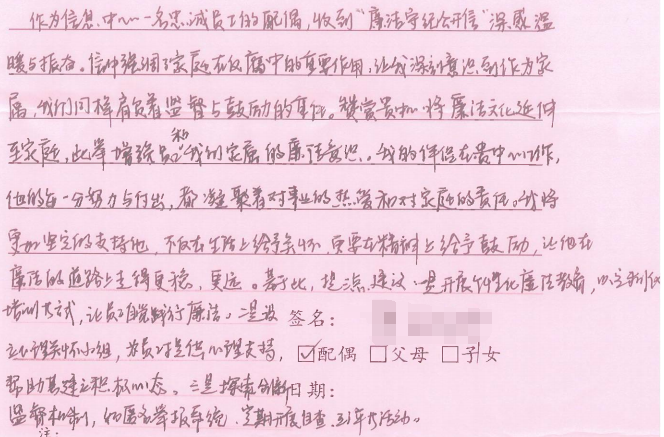 作为信息中心一名忠诚员工的配偶，收到“廉洁守纪公开信”深感温
暖与振奋。信中强调了家庭在反腐中的重要作用，让我深刻意识到作为家
属，我们同样肩负着监督与鼓励的责任。赞赏贵中心将廉洁文化延伸
至家庭，此举增强员工和我们家属的廉洁意识。我的伴侣在贵中心工作，
他的每一分努力与付出，都凝聚着对事业的热爱和对家庭的责任。我将
更加坚定的支持他，不仅在生活上给予关怀，更要在精神上给予鼓励，让他在
廉洁的道路上走得更稳、更远。基于此，提三点建议：一是开展个性化廉洁教育，以定制化
培训方式，让员工自觉践行廉洁。二是设
签名：
立心理关怀小组，为员工提供心理支持，
☑配偶 □父母 □子女
帮助其建立积极心态。三是探索创新
日期：
监督机制，如匿名举报系统、定期开展自查、互查活动。
注：